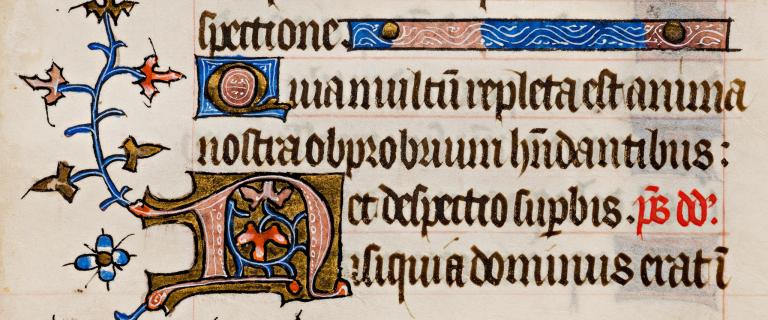 spectione.
Quia multū repleta est anima
nostra obprobrium hūdantibus :
et despectio supbis . ps dd'.
Nisi quia dominus erat ī